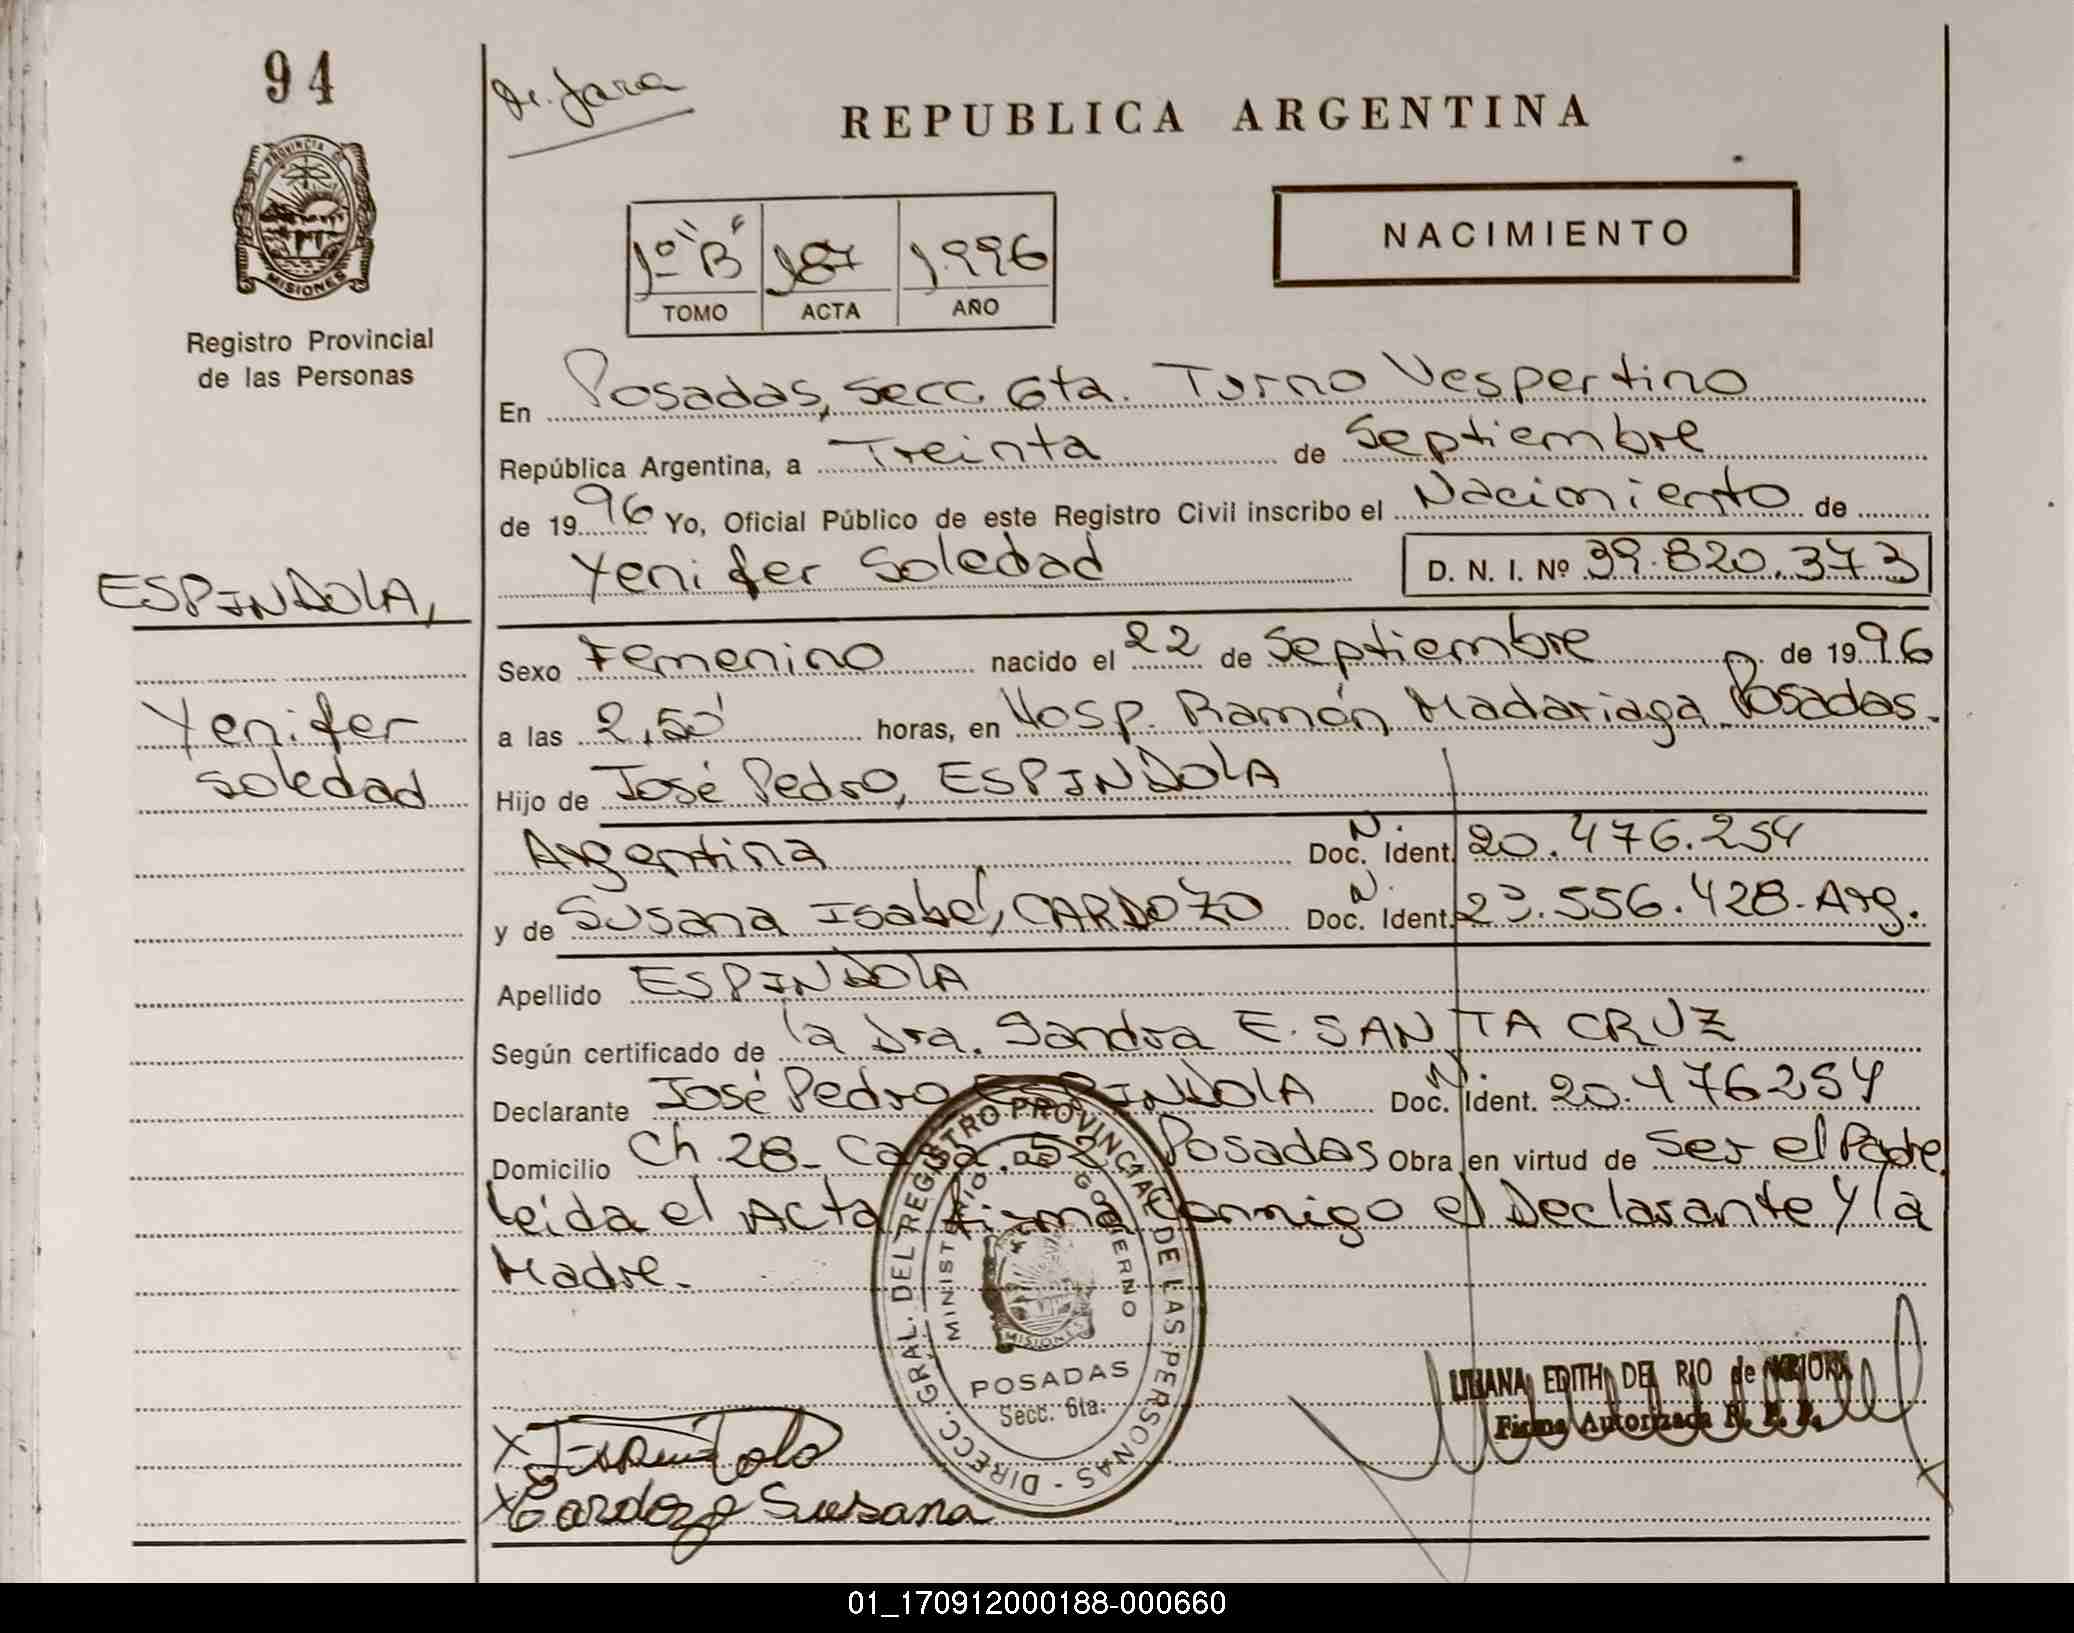 94
PROVINCIA DE
MISIONES
Registro Provincial
de las Personas
REPUBLICA ARGENTINA
NACIMIENTO
1º "B" 187 1.996
TOMO ACTA AÑO
En Posadas, Secc. 6ta. Turno Vespertino
República Argentina, a Treinta de Septiembre
de 1996 Yo, Oficial Público de este Registro Civil inscribo el Nacimiento de
Yenifer Soledad D. N. I. Nº 39.820.373
ESPINDOLA,
Yenifer
Soledad
Sexo Femenino nacido el 22 de Septiembre de 1996
a las 2,50' horas, en Hosp. Ramón Madariaga Posadas.
Hijo de José Pedro, ESPINDOLA
Argentina Doc. N. Ident. 20.476.254
y de Susana Isabel, CARDOZO Doc. N. Ident. 23.556.428-Arg.
Apellido ESPINDOLA
Según certificado de la Dra. Sandra E. SANTA CRUZ
Declarante José Pedro ESPINDOLA Doc. N. Ident. 20.476254
Domicilio Ch. 28- Casa. 52 Posadas Obra en virtud de ser el Padre
Leída el Acta firma conmigo el Declarante y la
Madre.
DIRECC. GRAL. DEL REGISTRO PROVINCIAL DE LAS PERSONAS
MINISTERIO DE GOBIERNO
MISIONES
POSADAS
Secc. 6ta.
LILIANA EDITH DEL RIO de
Firma Autorizada R. P. P.
x Espindola
x Cardozo Susana
01_170912000188-000660